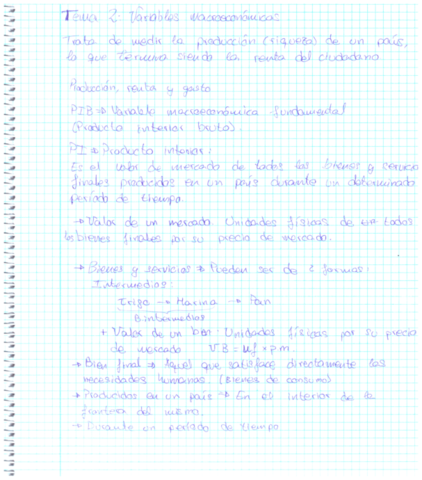 Tema 2: Variables macroeconómicas:
Trata de medir la producción (riqueza) de un país,
lo que termina siendo la renta del ciudadano
Producción, renta y gasto
PIB → Variable macroeconómica fundamental
(Producto interior bruto).
PI → Producto interior:
Es el valor de mercado de todos los bienes y servicios
finales producidos en un país durante un determinado
período de tiempo.
→ Valor de un mercado. Unidades físicas de todos
los bienes finales por su precio de mercado.
→ Bienes y servicios → Pueden ser de 2 formas:
Intermedios:
Trigo → Harina → Pan
B. intermedios
+ Valor de un bien: Unidades físicas por su precio
de mercado V.B = uf × p.m.
→ Bien final → Aquel que satisface directamente las
necesidades humanas. (Bienes de consumo)
→ Producidos en un país → En el interior de la
frontera del mismo.
→ Durante un período de tiempo